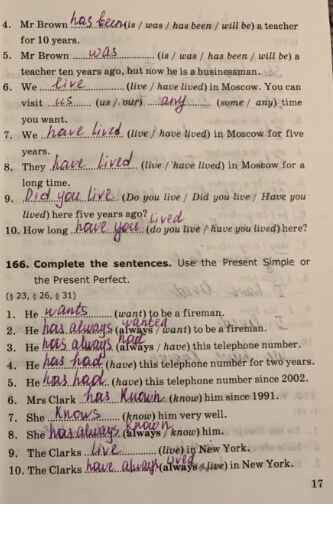 4. Mr Brown has been (is / was / has been / will be) a teacher
for 10 years.
5. Mr Brown was (is / was / has been / will be) a
teacher ten years ago, but now he is a businessman.
6. We live (live / have lived) in Moscow. You can
visit us (us / our) any (some / any) time
you want.
7. We have lived (live / have lived) in Moscow for five
years.
8. They have lived (live / have lived) in Moscow for a
long time.
9. Did you live (Do you live / Did you live / Have you
lived) here five years ago?
10. How long have you lived (do you live / have you lived) here?
166. Complete the sentences. Use the Present Simple or
the Present Perfect.
(§ 23, § 26, § 31)
1. He wants (want) to be a fireman.
2. He has always wanted (always / want) to be a fireman.
3. He has always had (always / have) this telephone number.
4. He has had (have) this telephone number for two years.
5. He has had (have) this telephone number since 2002.
6. Mrs Clark has known (know) him since 1991.
7. She knows (know) him very well.
8. She has always known (always / know) him.
9. The Clarks live (live) in New York.
10. The Clarks have always lived (always / live) in New York.
17